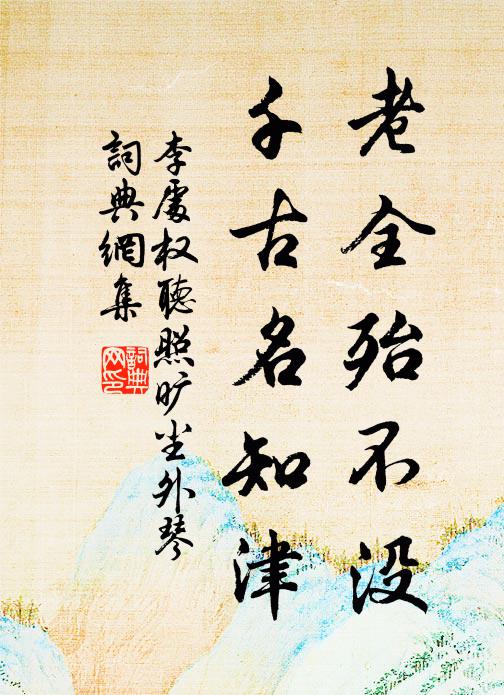 老全殆不没
千古名知津
李處权聽照旷尘外琴
詞典網集
詞典網印